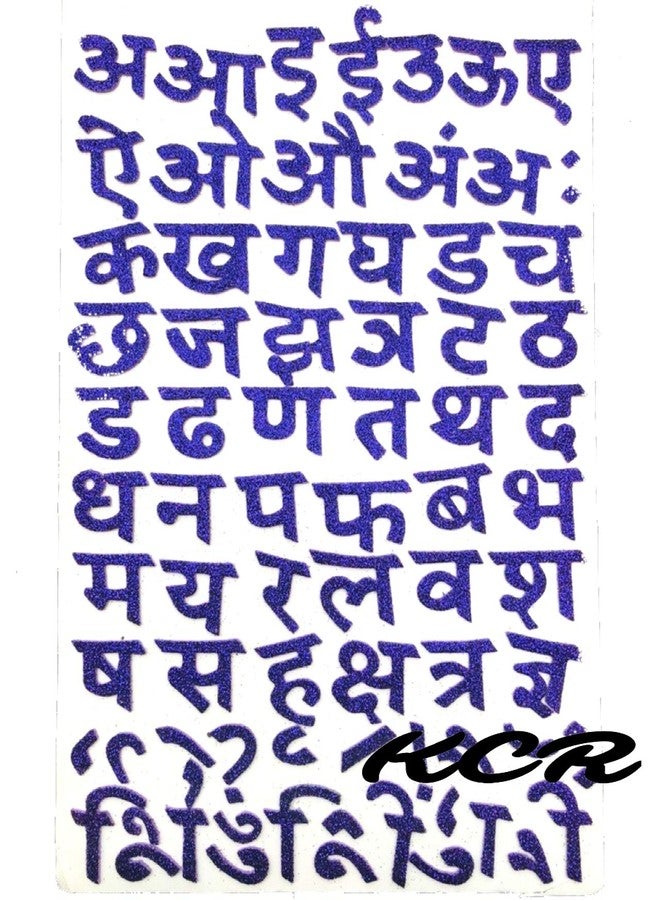 अ आ इ ई उ ऊ ए
ऐ ओ औ अं अः
क ख ग घ ड च
छ ज झ ञ ट ठ
ड ढ ण त थ द
ध न प फ ब भ
म य र ल व श
ष स ह क्ष त्र ज्ञ
KCR